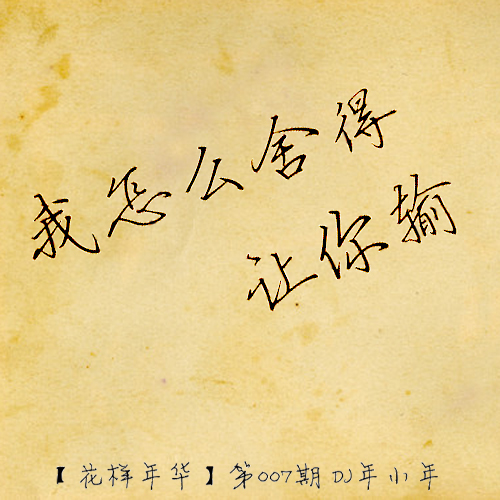 我怎么舍得
让你输
【花样年华】第007期DJ年小年